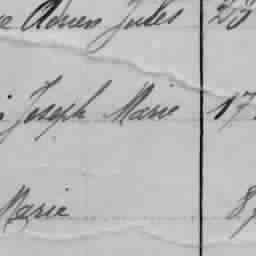 Adrien Jules 23
Joseph Marie 17
Marie 8